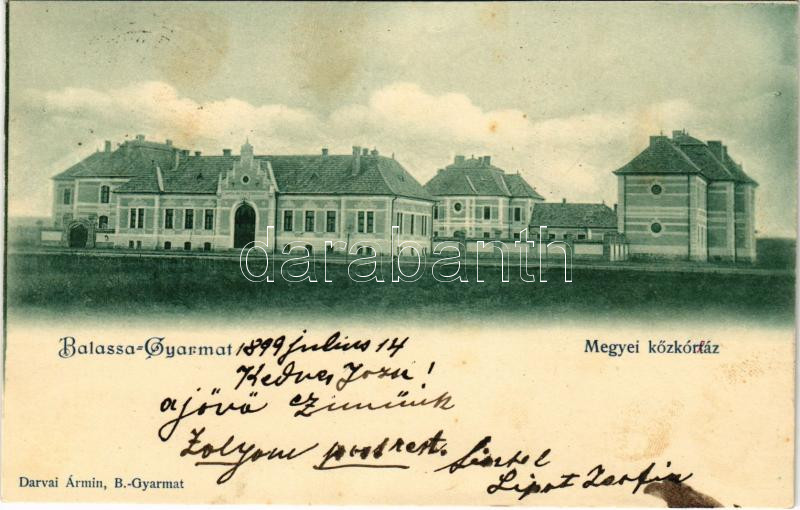 darabanth
Balassa-Gyarmat 1899 julius 14
Megyei kőzkórház
Kedves Jozsi!
ajövő czimünk
Zolyom postrest.
Lipot Zsofia
Darvai Ármin, B.-Gyarmat